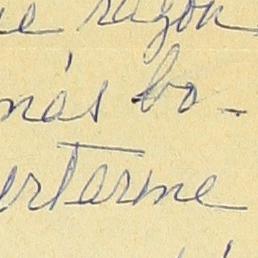 e razón
más bo-
ertarme